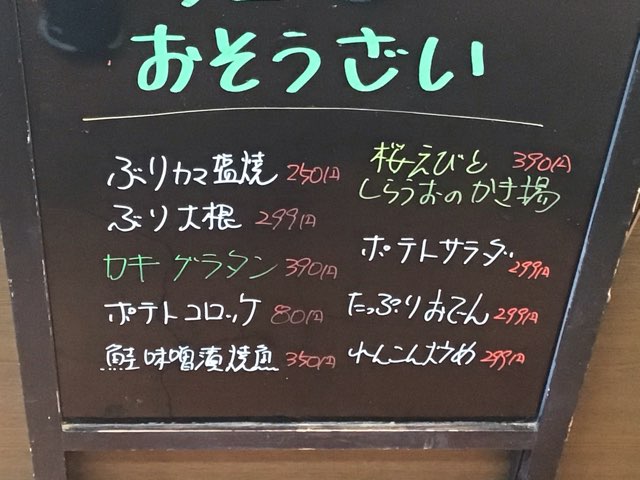 おそうざい
ぶりカマ塩焼 250円
ぶり大根 299円
カキグラタン 390円
ポテトコロッケ 80円
鮭味噌漬焼魚 350円
桜えびと 390円
しらうおのかき揚
ポテトサラダ 299円
たっぷりおでん 299円
れんこん炒め 299円